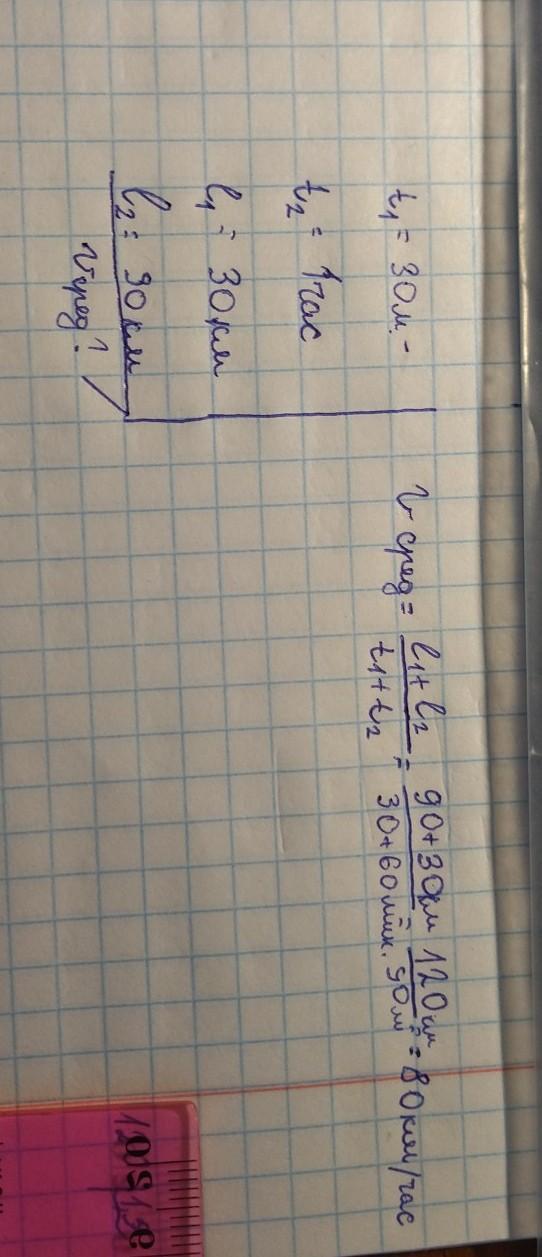 t₁ = 30 м. -
t₂ = 1 час
l₁ = 30 км
l₂ = 90 км
v сред?
v сред = l₁ + l₂ / t₁ + t₂ = 90 + 30 км / 30 + 60 мин. = 120 км / 90 м = 80 км/час